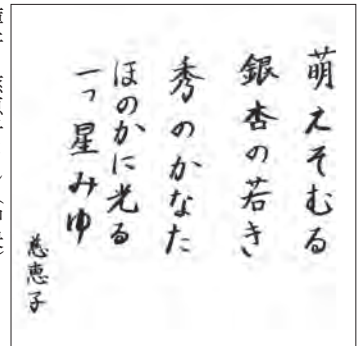 萌えそむる
銀杏の若き
秀のかなた
ほのかに光る
一つ星みゆ
慈恵子